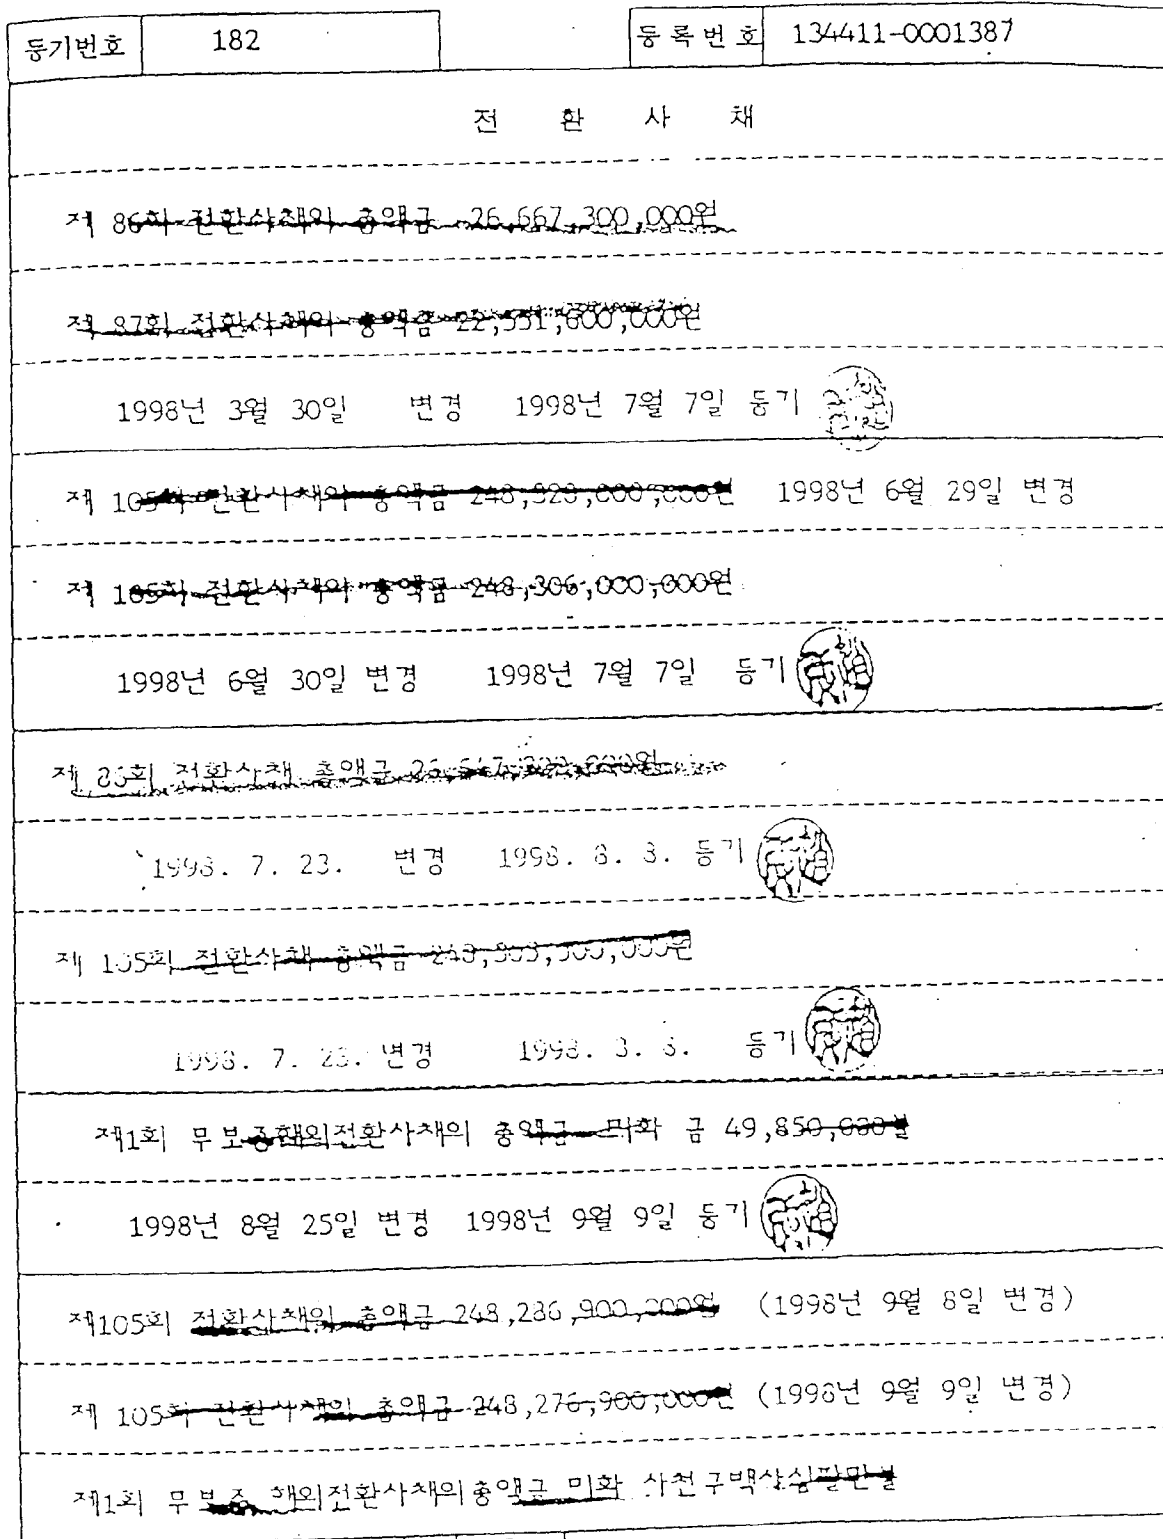 등기번호 182 등록번호 134411-0001387
전 환 사 채
제 86회 전환사채의 총액금 26,667,300,000원
제 87회 전환사채의 총액금 22,531,600,000원
1998년 3월 30일 변경 1998년 7월 7일 등기
제 105회 전환사채의 총액금 1998년 6월 29일 변경
제 105회 전환사채의 총액금 248,306,000,000원
1998년 6월 30일 변경 1998년 7월 7일 등기
제 86회 전환사채 총액금
1998. 7. 23. 변경 1998. 8. 8. 등기
제 105회 전환사채 총액금
1998. 7. 23. 변경 1998. 8. 8. 등기
제1회 무보증해외전환사채의 총액금 미화 금 49,850,000불
1998년 8월 25일 변경 1998년 9월 9일 등기
제105회 전환사채의 총액금 248,286,900,000원 (1998년 9월 8일 변경)
제 105회 전환사채의 총액금 248,276,900,000원 (1998년 9월 9일 변경)
제1회 무보증 해외전환사채의총액금 미화 사천구백삼십팔만불